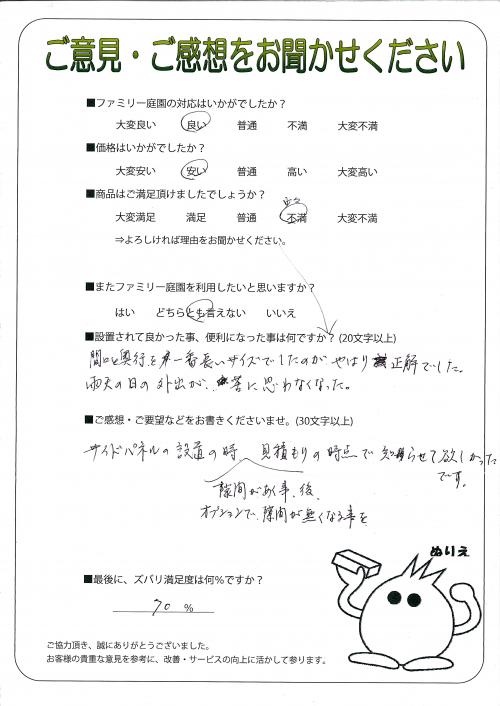 ご意見・ご感想をお聞かせください
■ファミリー庭園の対応はいかがでしたか？
大変良い 良い 普通 不満 大変不満
■価格はいかがでしたか？
大変安い 安い 普通 高い 大変高い
■商品はご満足頂けましたでしょうか？
大変満足 満足 普通 不満 大変不満
⇒よろしければ理由をお聞かせください。
■またファミリー庭園を利用したいと思いますか？
はい どちらとも言えない いいえ
■設置されて良かった事、便利になった事は何ですか？(20文字以上)
間口と奥行を一番長いサイズでしたのが やはり 正解でした。
雨天の日の外出が、苦に思わなくなった。
■ご感想・ご要望などをお書きくださいませ。(30文字以上)
サイドパネルの設置の時 見積もりの時点で 知らせて欲しかった
です。
隙間があく事、後、
オプションで、隙間が無くなる事を
ぬりえ
■最後に、ズバリ満足度は何%ですか？
70 %
ご協力頂き、誠にありがとうございました。
お客様の貴重な意見を参考に、改善・サービスの向上に活かして参ります。